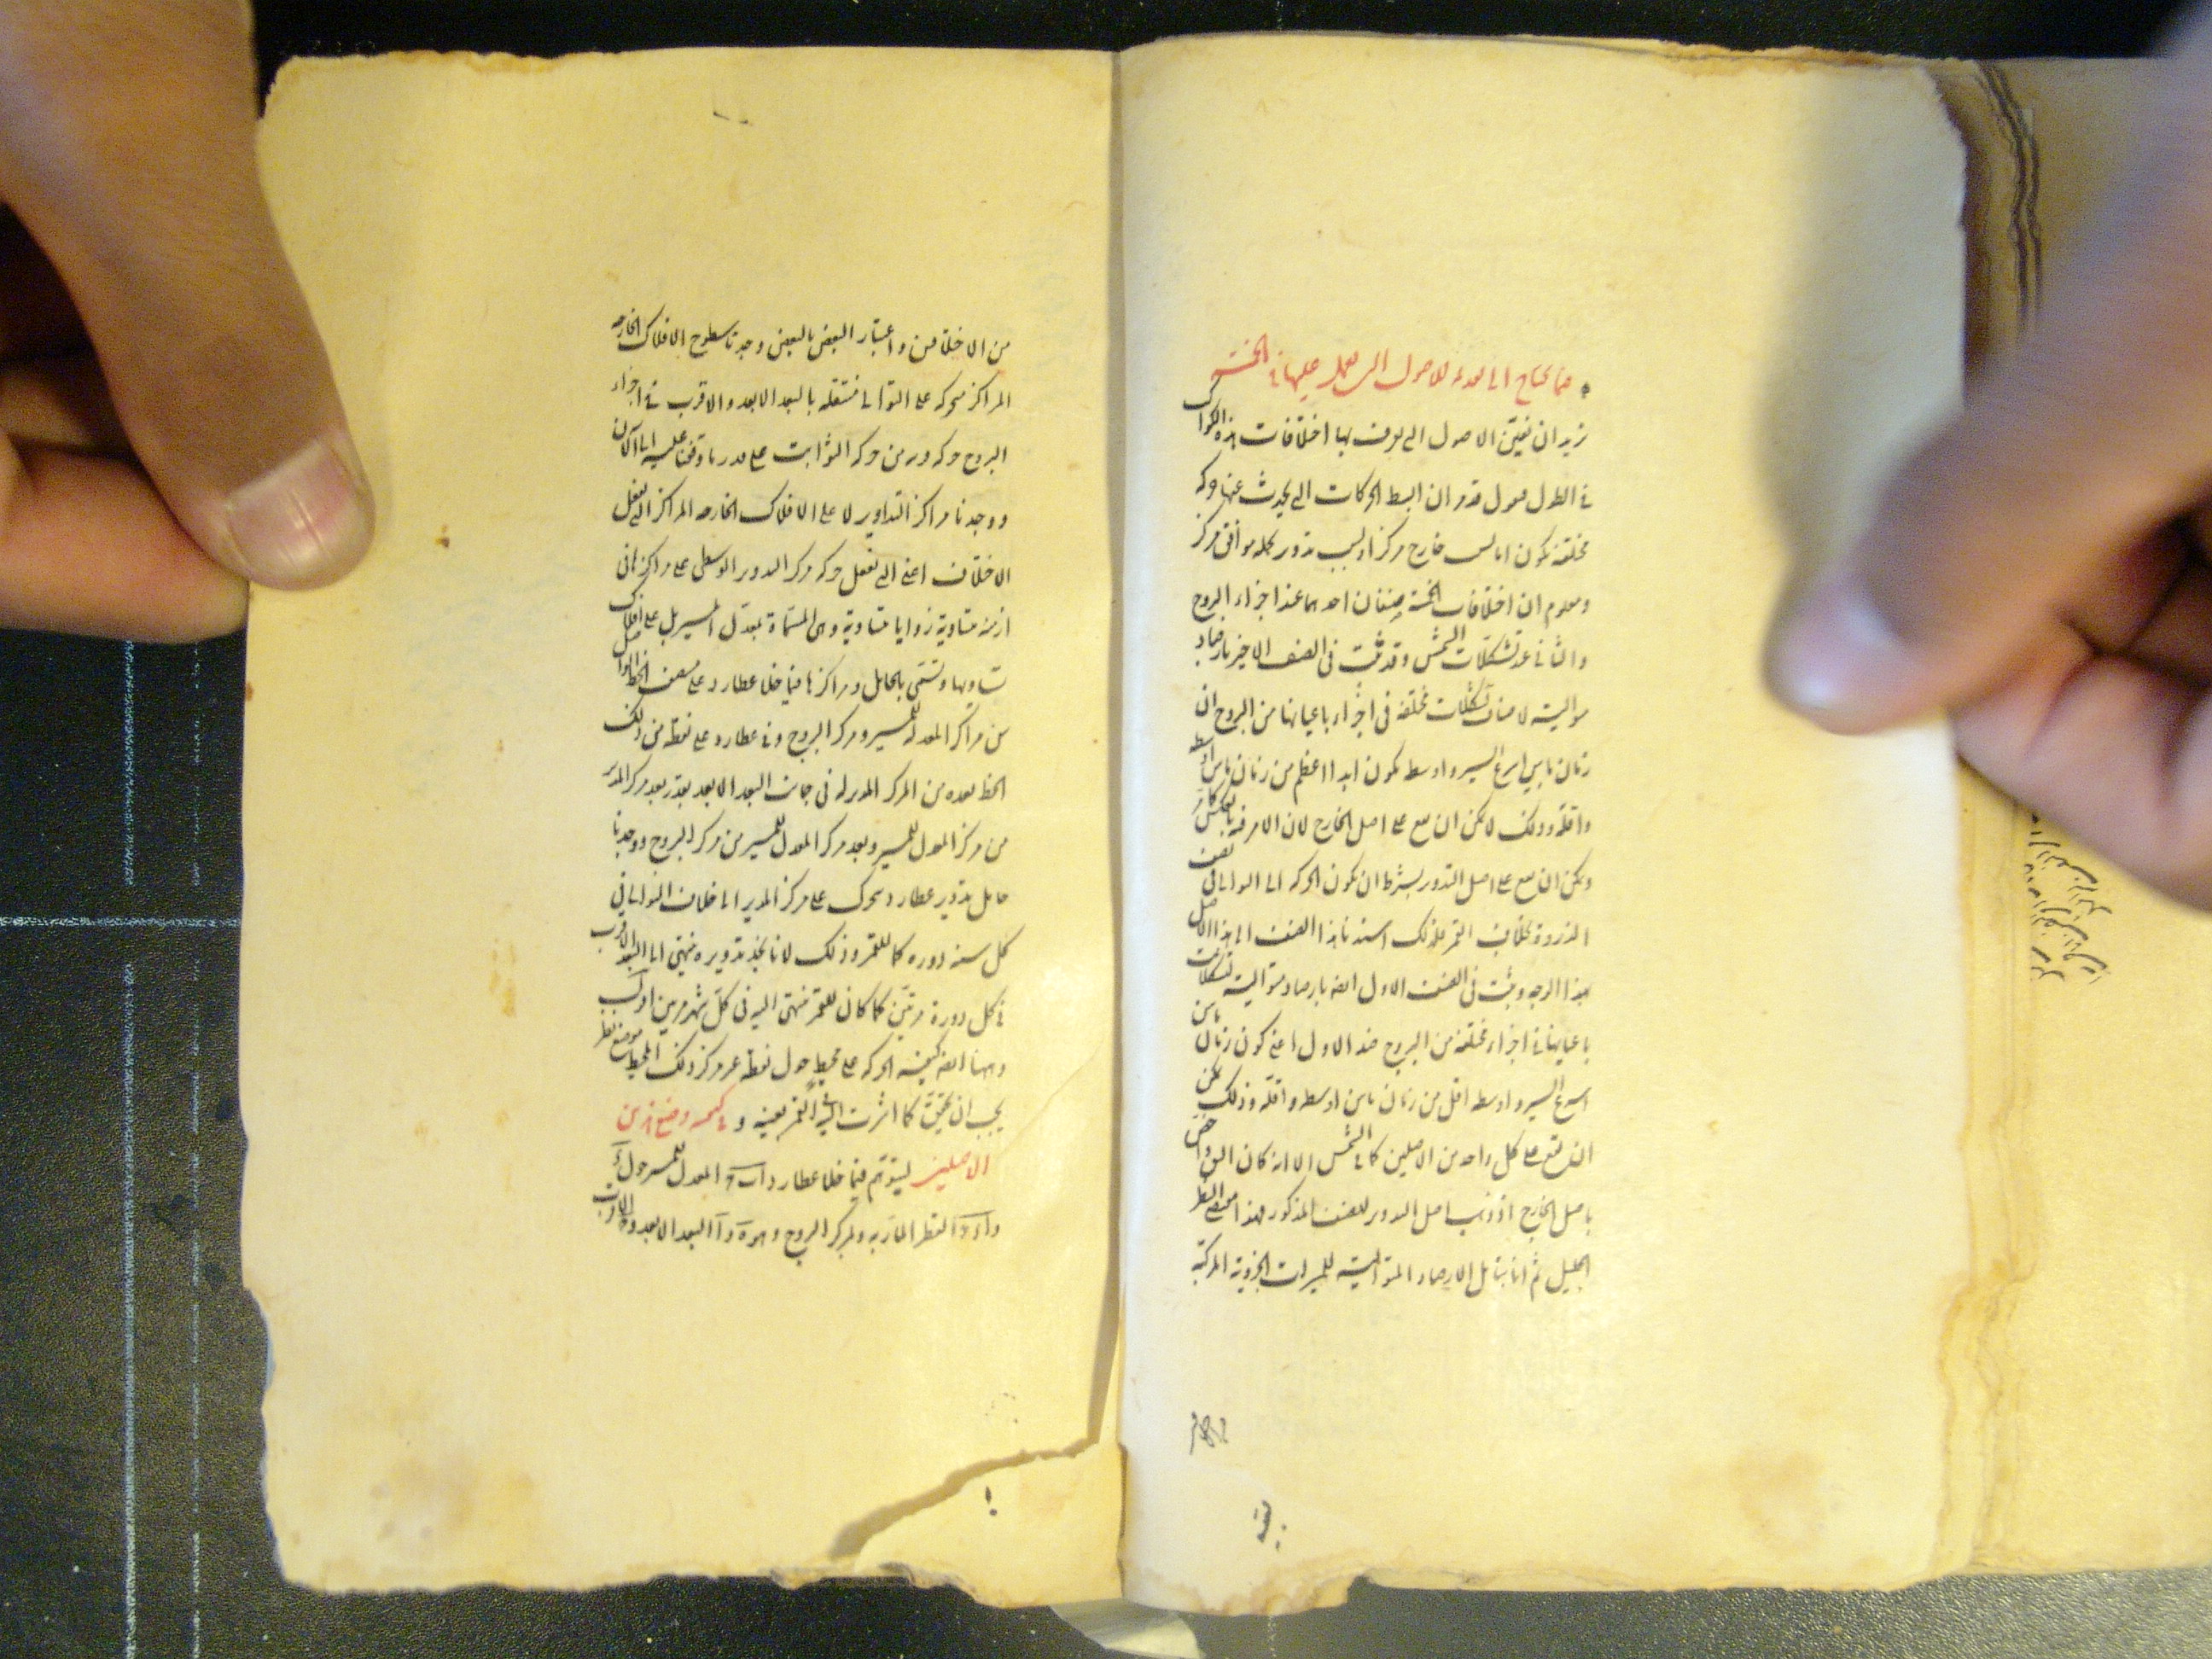 فيما يحتاج الى تقديمه للاصول التى يعمل عليها فى الخمسة
نريد ان نبين الاصول التى يعرف بها اختلافات هذه الكواكب
فى الطول فنقول قد مر ان ابسط الحركات التى يحدث عنها حركة
مختلفة تكون اما بسبب خارج مركز او بسبب تدوير يحمله موافق مركز
ومعلوم ان اختلافات الخمسة صنفان احدهما عند اجزاء البروج
والثانى عند تشكلات الشمس وقد ثبت فى الصنف الاخير بارصاد
متوالية لاصناف تشكلات مختلفة فى اجزاء باعيانها من البروج ان
زمان ما بين اسرع السير واوسطه يكون ابدا اعظم من زمان ما بين اوسطه
واقله وذلك لا يمكن ان يقع على اصل الخارج لان الامر فيه بالعكس كما مر
ويمكن ان يقع على اصل التدوير بشرط ان يكون الحركة الى التوالى فى نصف
الذروة بخلاف القمر فلذلك اسندنا هذا الصنف الى هذا الاصل
بهذا الوجه وثبت فى الصنف الاول ايضا بارصاد متوالية لتشكلات
باعيانها فى اجزاء مختلفة من البروج ضد الاول اعنى كون زمان ما بين
اسرع السير واوسطه اقل من زمان ما بين اوسطه واقله وذلك يمكن
ان يقع على كل واحد من الاصلين كما فى الشمس الا انه كان اليق واخص
باصل الخارج اذ ذهب اصل التدوير للصنف المذكور فهذا مقتضى النظر
الجليل ثم انا بتامل الارصاد المتوالية للمسيرات الجزوية المركبة
من الاختلافين واعتبار البعض بالبعض وجدنا سطوح الافلاك الخارجة
المراكز متحركة على التوالى منتقلة بالبعد الابعد والاقرب فى اجزاء
البروج حركة قريبة من حركة الثوابت على قدر ما وقفنا عليه الى الآن
ووجدنا مراكز التداوير لا على الافلاك الخارجة المراكز التى تفعل
الاختلاف اعنى التى تفعل حركة مركز التدوير الوسطى على مراكزها فى
ازمنة متساوية زوايا متساوية وهى المسماة بمعدل المسير بل على افلاك
تساويها وتسمى بالحامل ومراكزها فيما خلا عطارد على منصف الخط الواصل
بين مراكز المعدلة للمسير ومركز البروج وفى عطارد على نقطة من ذلك
الخط بعده من المركز المدير له فى جانب البعد الابعد بقدر بعد مركز المدير
من مركز المعدل للمسير وبعد مركز المعدل للمسير من مركز البروج ووجدنا
حامل تدوير عطارد يتحرك على مركز المدير الى خلاف التوالى فى
كل سنة دورة كما للقمر وذلك لانا نجد تدويره ينتهى الى البعد الاقرب
فى كل دورة مرتين كما كان للقمر ينتهى اليه فى كل شهر مرتين
وههنا ايضا كيفية الحركة على محيط حول نقطة غير مركز ذلك المحيط موضع نظر
يجب ان يحقق كما اشرت اليه فى القمر بعينه و فى كيفية وضع هذين
الاصلين ليتوهم فيما خلا عطارد المعدل للمسير حول
القطر المار به وبمركز البروج وهو البعد الابعد والاقرب